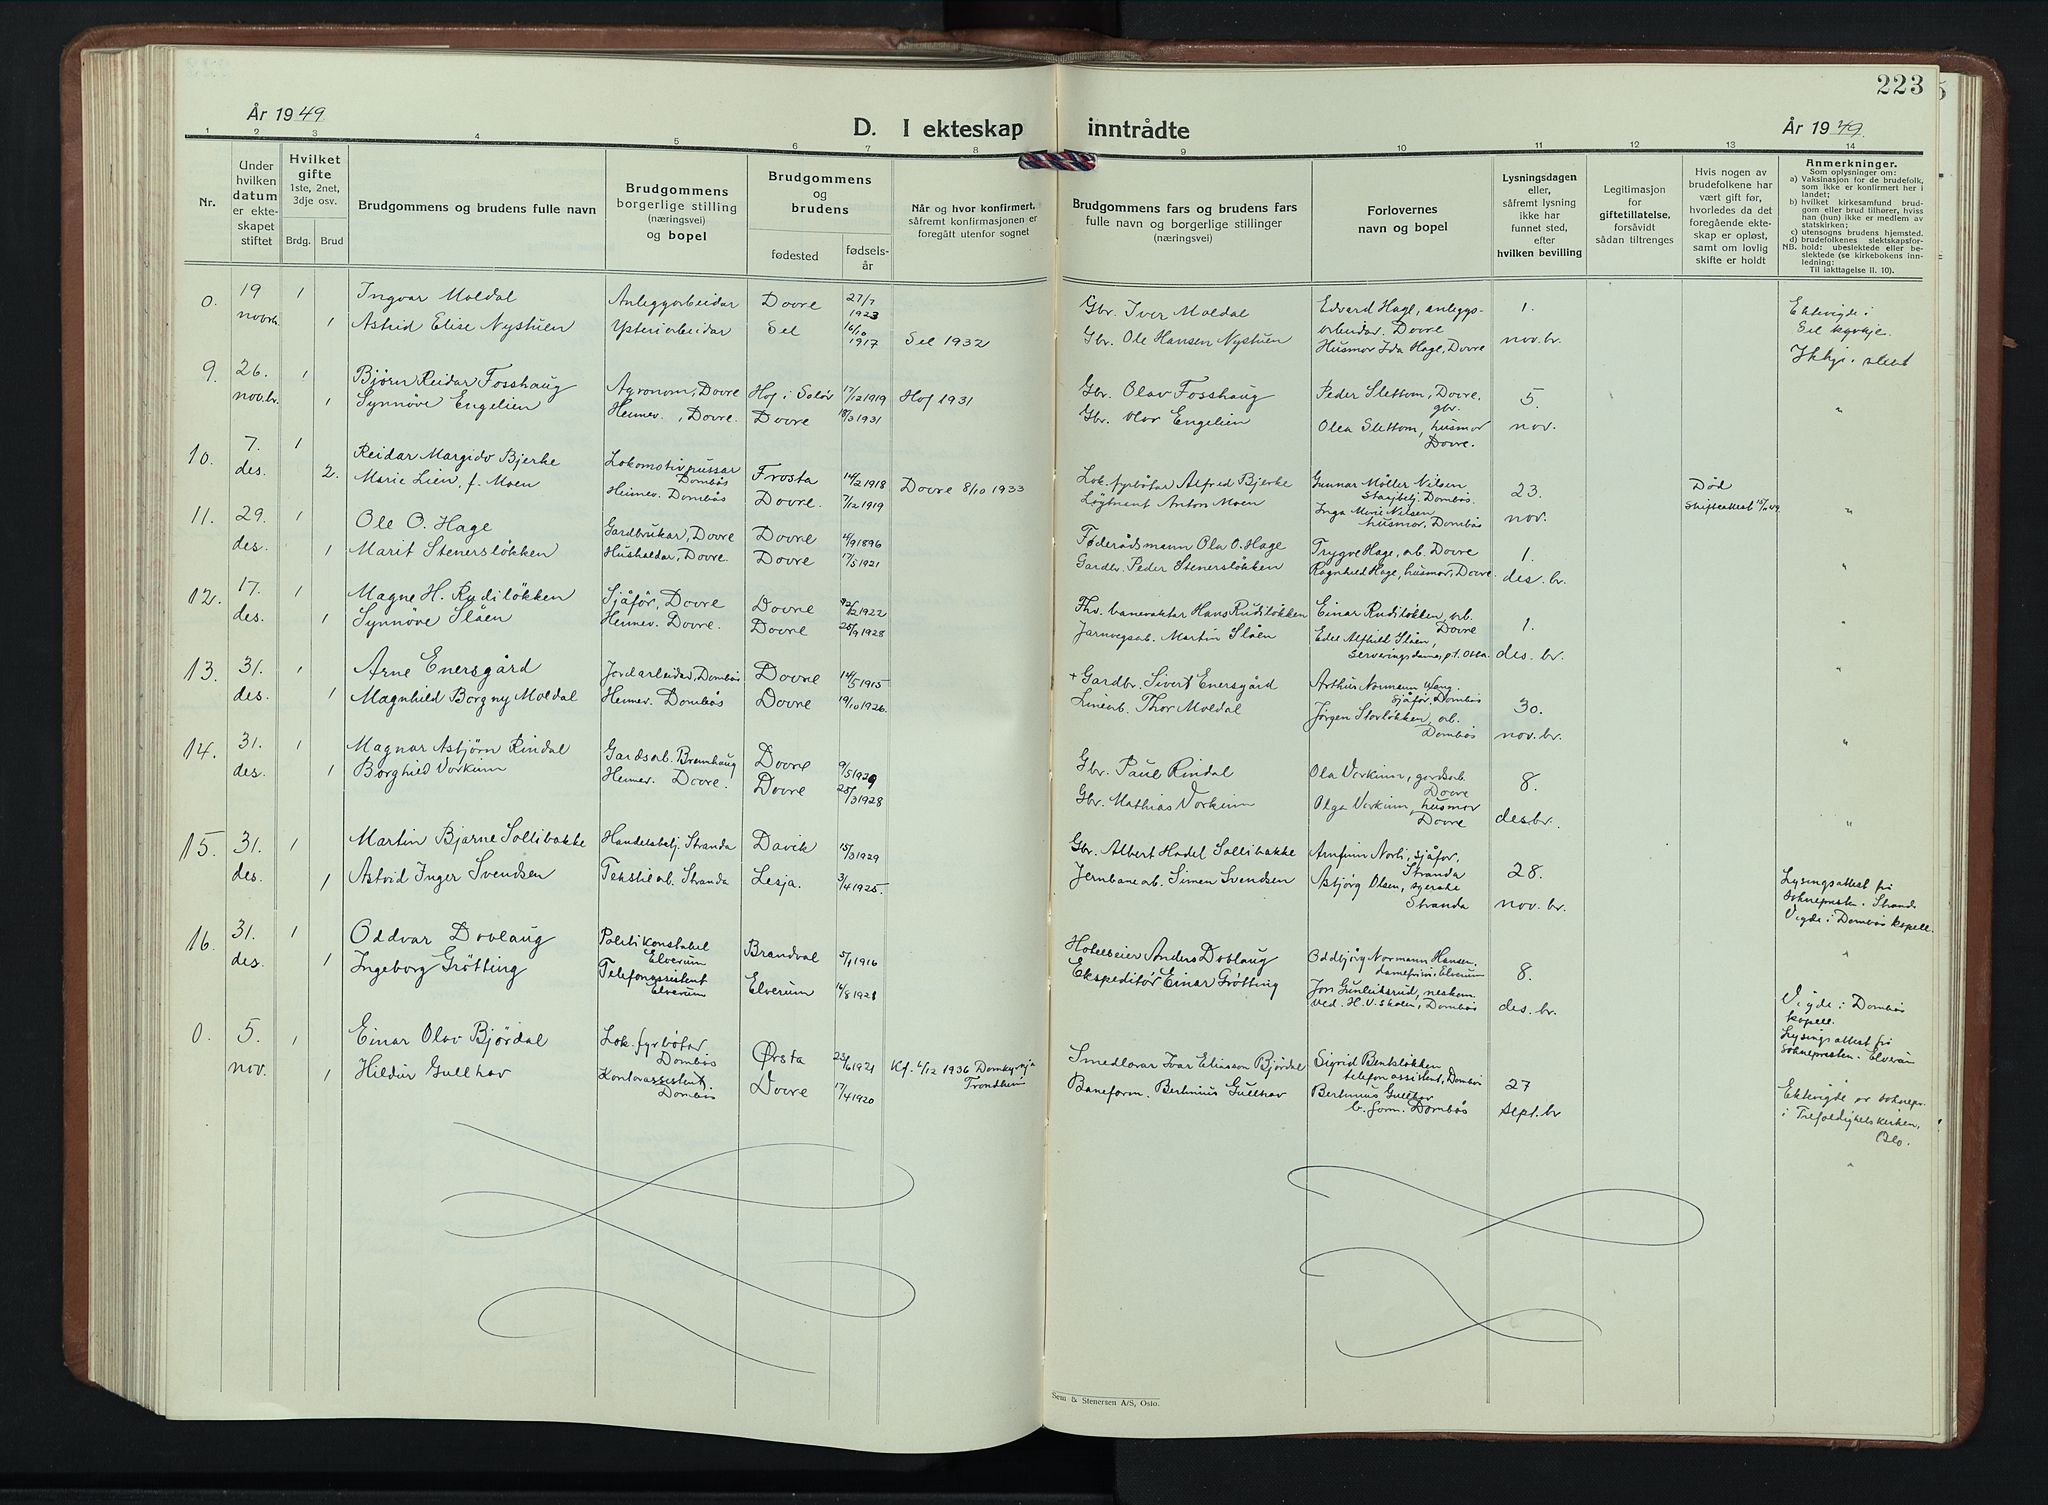 223
År 1949.
D. I ekteskap inntrådte
År 1949.
1 2 3 4 5 6 7 8 9 10 11 12 13 14
Nr.
Under hvilken datum er ekteskapet stiftet
Hvilket gifte
1ste, 2net, 3dje osv.
Brdg. Brud
Brudgommens og brudens fulle navn
Brudgommens borgerlige stilling (næringsvei) og bopel
Brudgommens og brudens
fødested
fødselsår
Når og hvor konfirmert, såfremt konfirmasjonen er foregått utenfor sognet
Brudgommens fars og brudens fars fulle navn og borgerlige stillinger (næringsvei)
Forlovernes navn og bopel
Lysningsdagen eller, såfremt lysning ikke har funnet sted, efter hvilken bevilling
Legitimasjon for giftetillatelse, forsåvidt sådan tiltrenges
Hvis nogen av brudefolkene har vært gift før, hvorledes da det foregående ekteskap er opløst, samt om lovlig skifte er holdt
Anmerkninger.
Som oplysninger om:
a) Vaksinasjon for de brudefolk, som ikke er konfirmert her i landet;
b) hvilket kirkesamfund brudgom eller brud tilhører, hviss han (hun) ikke er medlem av statskirken;
c) utensogns brudens hjemsted.
d) brudefolkenes slektskapsforhold: ubeslektede eller beslektede (se kirkebokens innledning:
NB. Til iakttagelse II. 10).
0. 19 novbr. 1 Ingvar Moldal Anleggsarbeidar Dovre 27/7 1923 Gbr. Iver Moldal Edvard Hage, anleggsarbeidar, Dovre 1. Ektevigde i Sel kyrkje.
1 Astrid Elise Nystuen Ysteriarbeidar Sel 16/10 1917 Sel 1932 Gbr. Ole Hansen Nystuen Husmor Ida Hage, Dovre nov. br. Ikkje i slekt
9. 26. nov.br. 1 Bjørn Reidar Fosshaug Agronom, Dovre Hof i Solør 17/12 1919 Hof 1931 Gbr. Olav Fosshaug Peder Slettom, Dovre, gbr. 5.
1 Synnøve Engelien Heimev., Dovre. Dovre 18/3 1931 Gbr. Olov Engelien Olea Slettom, husmor Dovre. nov. "
10. 7. des. 1 Reidar Margido Bjerke Lokomotivpussar Dombås Frosta 14/2 1918 Lok. fyrbøtar Alfred Bjerke Gunnar Möller Nilsen Dombås. 23. Død
2. Marie Lien, f. Moen Heimev. Dombås Dovre. 7/12 1919 Dovre 8/10 1933 Løytnant Anton Moen Inga Marie Nilsen husmor, Dombås nov. Skifteattest "
11. 29. des. 1 Ole O. Hage Gardbrukar, Dovre Dovre 4/9 1896 Føderådsmann Ola O. Hage Trygve Hage, arb. Dovre 1.
1 Marit Stenersløkken Hushaldar, Dovre. Dovre 17/5 1921 Gardbr. Peder Stenersløkken Ragnhild Hage, husmor, Dovre. des. br. "
12. 17. des. 1 Magne H. Rudiløkken Sjåfør, Dovre Dovre 1922 Fhv. banevakter Hans Rudiløkken Einar Rudiløkken, arb. Dovre 1.
1 Synnøve Slåen Heimev. Dovre. Dovre 25/9 1928 Jarnvegsarb. Martin Slåen Edel Alfhild Slåen, Serveringsdame, p.t. Dovre. des. br. "
13. 31. des. 1 Arne Enersgård Jordarbeidar, Dombås Dovre 14/5 1915 + Gardbr. Sivert Enersgård Arthur Normann Vang. Sjåfør, Dombås 30. "
1 Magnhild Borgny Moldal Heimev. Dombås Dovre 19/10 1926. Linearb. Thor Moldal Jørgen Storløkken, arb. Dombås nov. br.
14. 31. des. 1 Magnar Asbjørn Rindal Gardsarb. Bremhaug Dovre 9/5 1929 Gbr. Paul Rindal Ola Vorkinn, gardsarb. Dovre 8. "
1 Borghild Vorkinn Heimev. Dovre. Dovre 25/3 1928 Gbr. Mathias Vorkinn Olga Vorkinn, husmor Dovre des.br. "
15. 31. des. 1 Martin Bjarne Sollibakke Handelsbetj. Stranda Davik 15/3 1929 Gbr. Albert Hodel Sollibakke Arnfinn Norli, sjåfør, Stranda 28. Lysingsattest frå soknepresten i Stranda
1 Astrid Inger Svendsen Tekstilarb. Stranda Lesja. 3/4 1925 Jernbanearb. Simen Svendsen Asbjørg Olsen, syerske Stranda nov. br. Vigde i Dombås kapell.
16. 31. des. 1 Oddvar Dovlaug Politikonstabel Elverum Brandval 5/1 1916 Hotelleier Anders Dovlaug Oddbjørg Normann Hansen. damefrisør, Elverum 8. "
1 Ingeborg Grøtting Telefonassistent Elverum Elverum 14/8 1921 Ekspeditør Einar Grøtting Jon Gunleiksrud, ved H.V. skolen, Dombås des. br. Vigde i Dombås kapell. Lysingsattest frå soknepresten i Elverum
0. 5. nov. 1 Einar Olav Bjørdal Lok. fyrbøtar Dombås Ørsta 23/6 1921 Kf. 6/12 1936 Domkyrkja Trondheim Smedlovar Ivar Eliasson Bjørdal Sigrid Bentsløkken telefonassistent, Dombås 27 Ektevigde av soknepr. i Trefoldighetskirken, Oslo.
1 Hildur Gullhav Kontorassistent. Dombås Dovre 17/4 1920 Baneform. Berlinius Gullhav Berlinius Gullhav b. form. Dombås sept. br "
Sem & Stenersen A/S, Oslo.